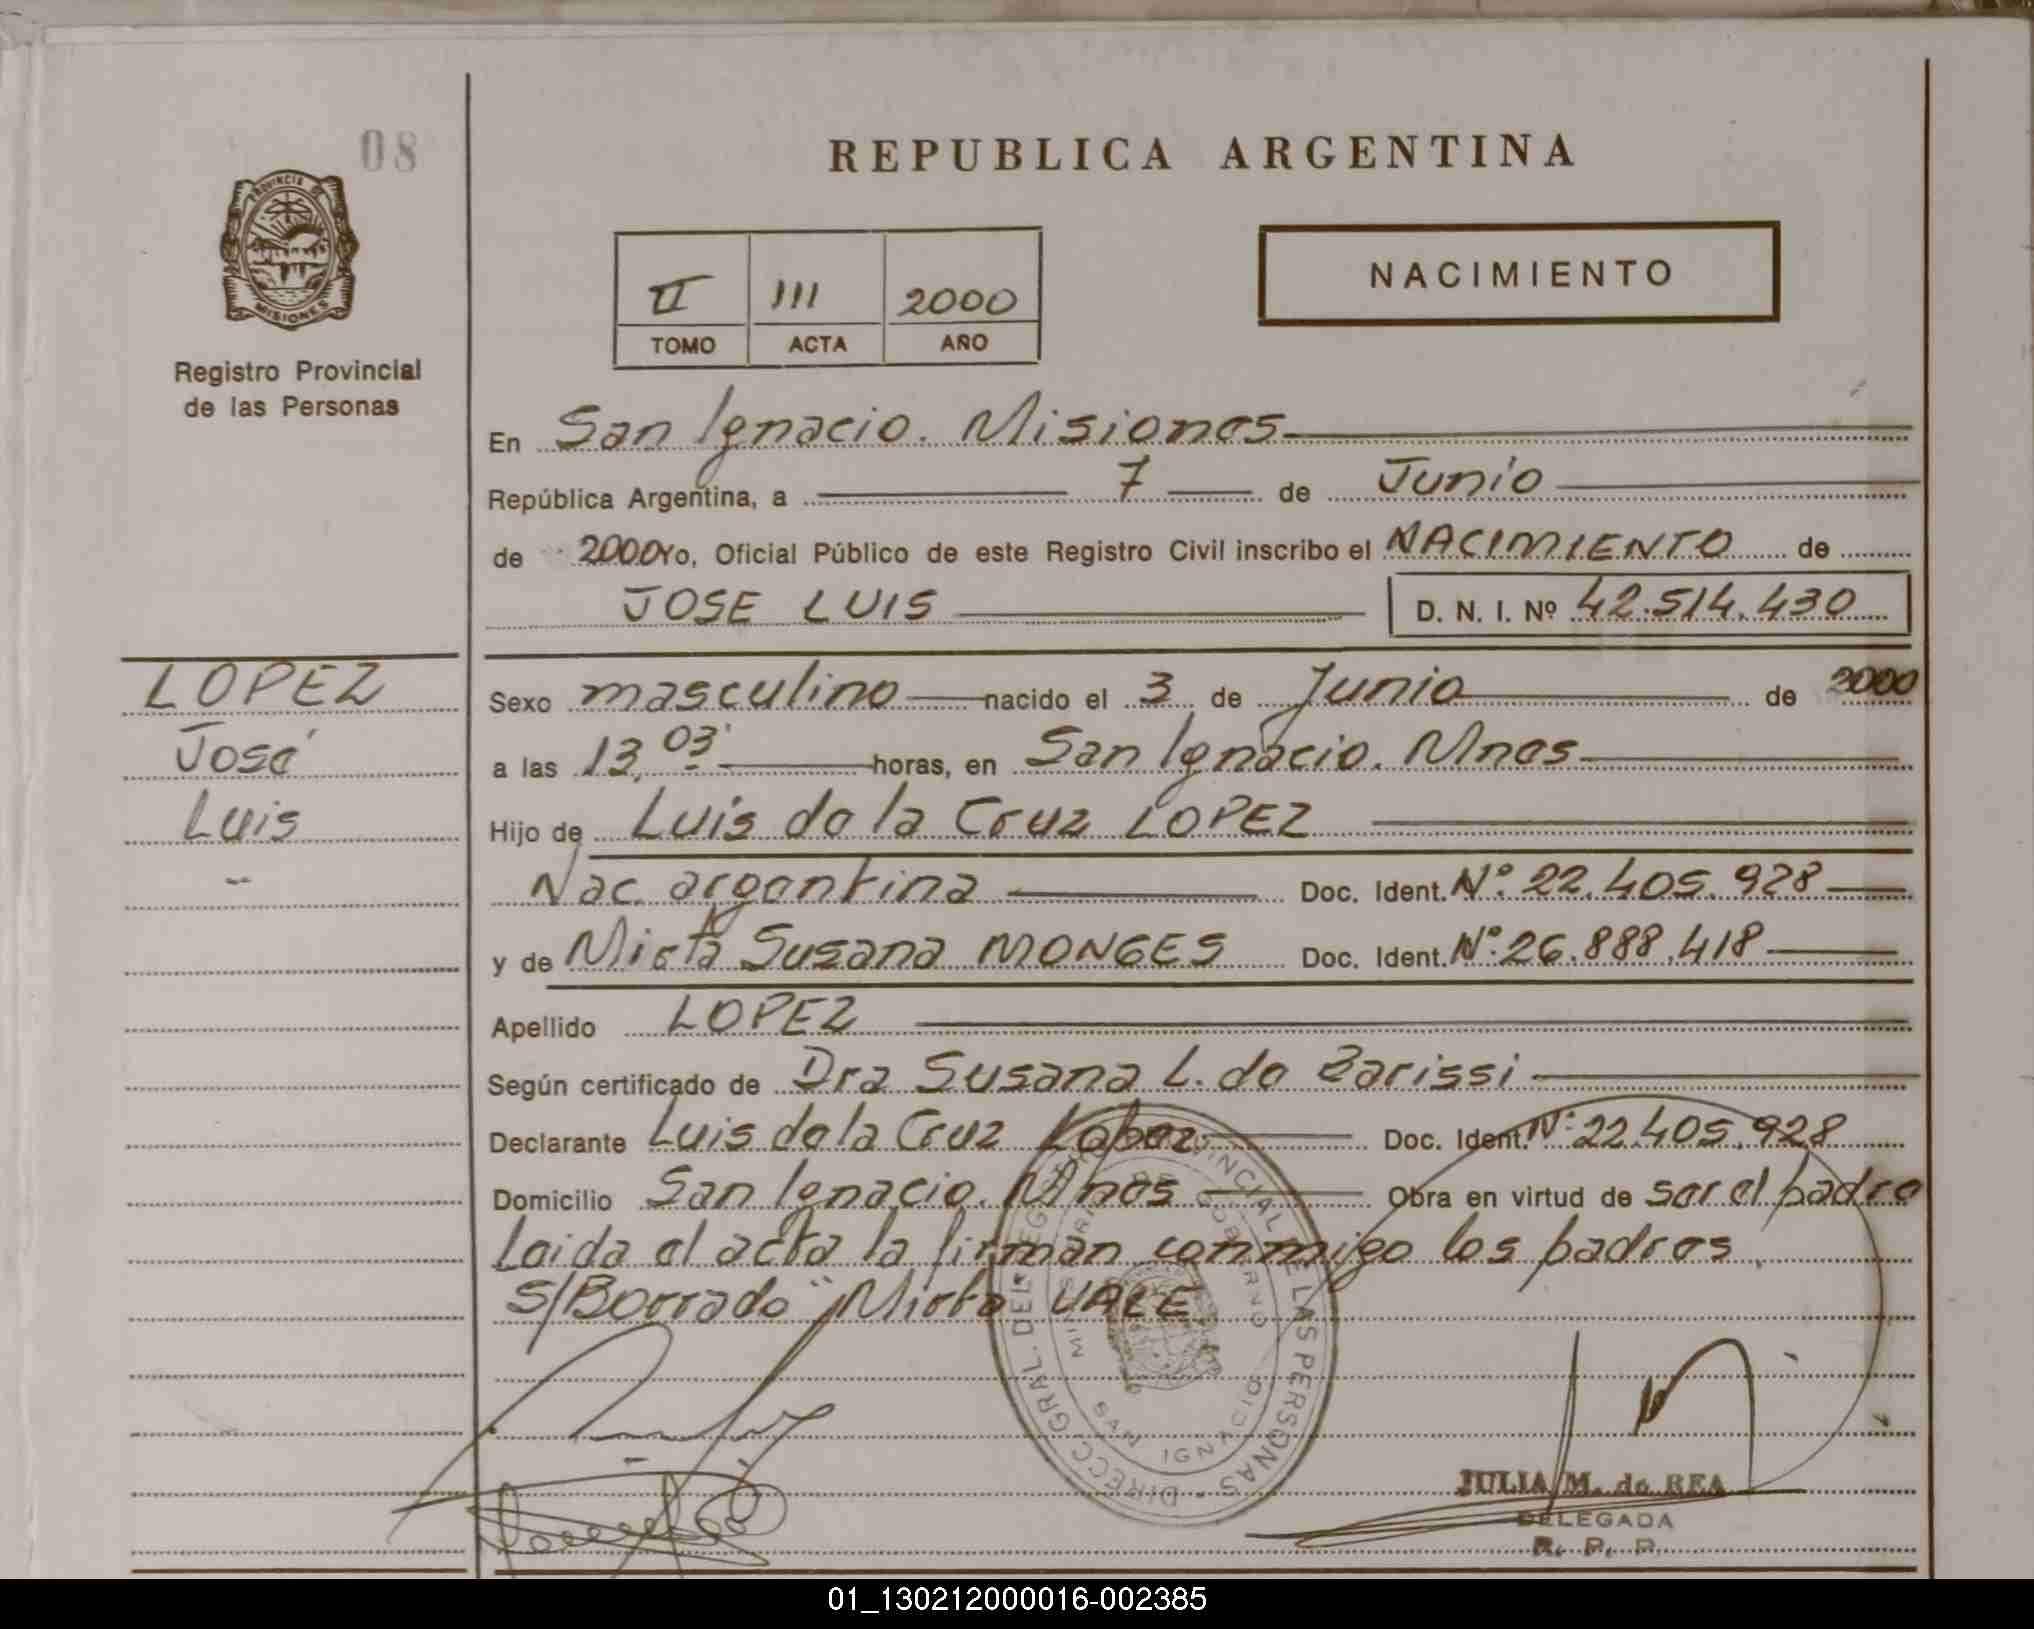 08
REPUBLICA ARGENTINA
PROVINCIA DE
MISIONES
Registro Provincial
de las Personas
II 111 2000
TOMO ACTA AÑO
NACIMIENTO
En San Ignacio. Misiones
República Argentina, a 7 de Junio
de 2000 Yo, Oficial Público de este Registro Civil inscribo el NACIMIENTO de
JOSE LUIS D. N. I. Nº 42.514.430
LOPEZ
José
Luis
Sexo masculino nacido el 3 de Junio de 2000
a las 13,03' horas, en San Ignacio. Mnes
Hijo de Luis de la Cruz LOPEZ
Nac. argentina Doc. Ident. Nº: 22.405.928
y de Mirta Susana MONGES Doc. Ident. Nº: 26.888.418
Apellido LOPEZ
Según certificado de Dra Susana L. de Barissi
Declarante Luis de la Cruz Lopez Doc. Ident. Nº: 22.405.928
Domicilio San Ignacio. Mnes Obra en virtud de ser el padre
Leida el acta la firman conmigo los padres
S/Borrado "Mirta VALE
DIRECC. GRAL. DEL REG. PROVINCIAL DE LAS PERSONAS
MINISTERIO DE GOBIERNO
SAN IGNACIO
JULIA M. de REA
DELEGADA
R. P. P.
01_130212000016-002385